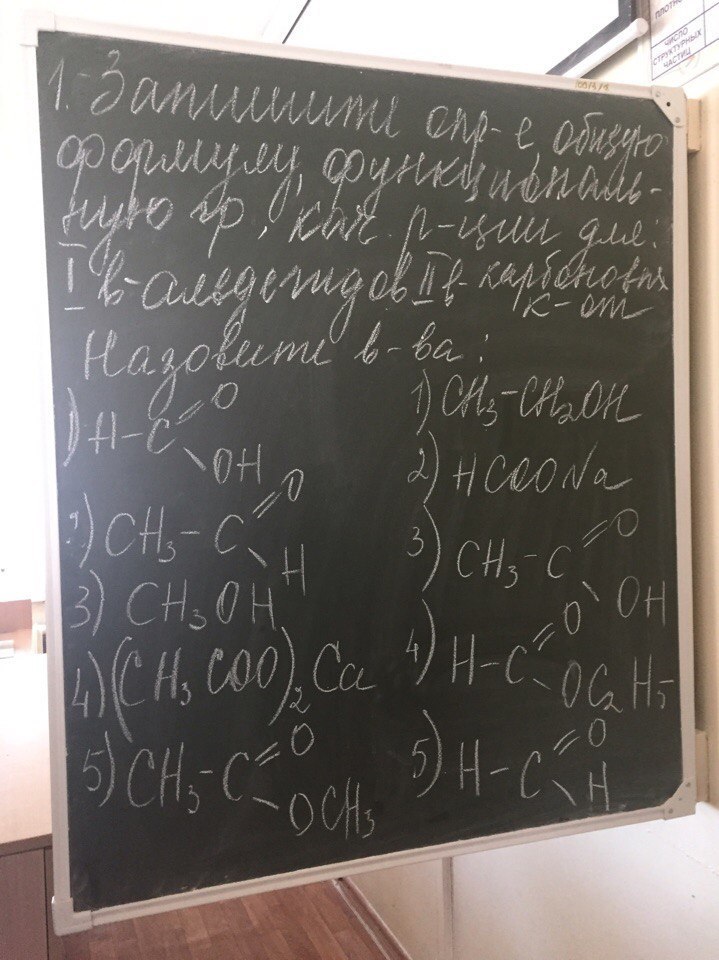 ПЛОТНО
ЧИСЛО
СТРУКТУРНЫХ
ЧАСТИЦ
1. Запишите опр-е, общую
формулу, функциональ-
ную гр, кач. р-ции для:
I в-альдегидов II в- карбоновых
к-от
Назовите в-ва:
1) H-C=O
OH
2) CH3-C=O
H
3) CH3OH
4) (CH3COO)2Ca
5) CH3-C=O
OCH3
1) CH3-CH2OH
2) HCOONa
3) CH3-C=O
OH
4) H-C=O
OC2H5
5) H-C=O
H